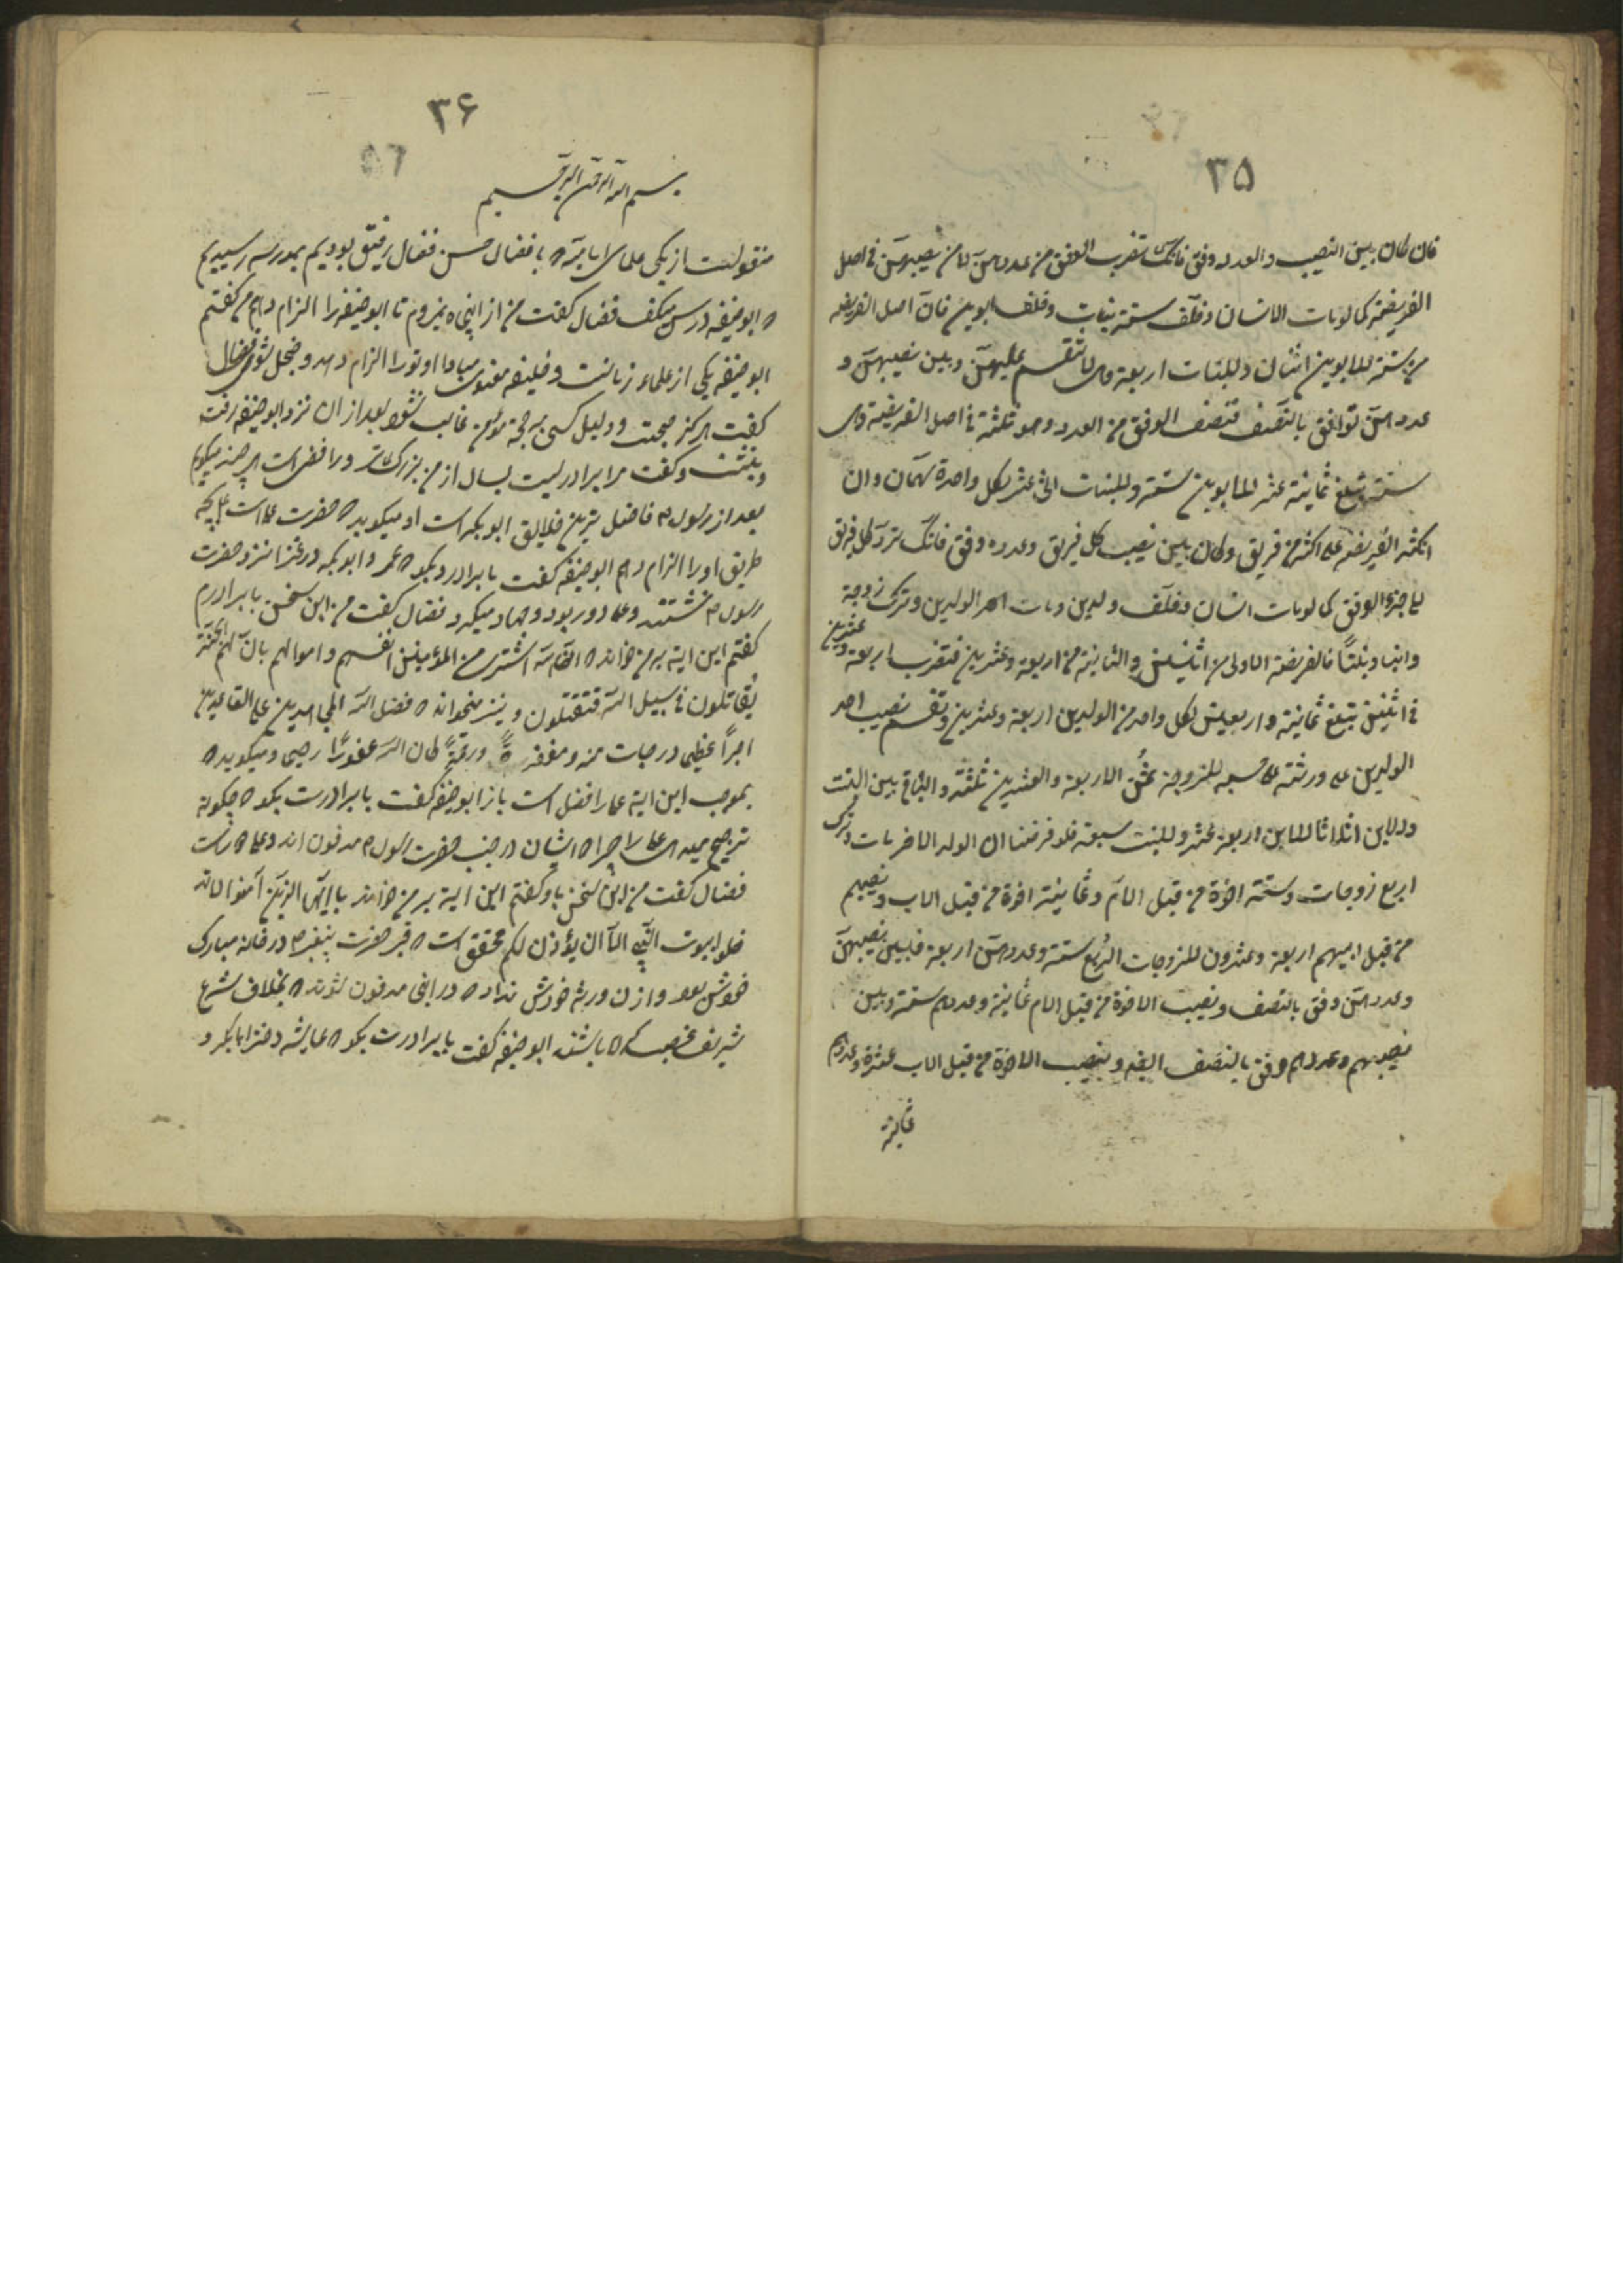 ۳۵
فان کان بین النصیب والعدد وفق فانک تضرب الوفق من عددهن لا من نصیبهن فی اصل
الفریضة کما لو مات الانسان وخلف ستة بنات وخلف ابوین فان اصل الفریضه
من ستة للابوین اثنان وللبنات اربعة وهی لا تنقسم علیهن وبین نصیبهن و
عددهن توافق بالنصف فتضرب الوفق من العدد وهو ثلثة فی اصل الفریضة وهی
ستة تبلغ ثمانیة عشر للابوین ستة وللبنات اثنی عشر لکل واحدة سهمان وان
انکسر الفریضه علی اکثر من فریق وکان بین نصیب کل فریق وعدده وفق فانک ترد کل فریق
الی جزء الوفق کما لو مات انسان وخلف ولدین ومات احد الولدین وترک زوجة
وابنا وبنتاً فالفریضة الاولی من اثنین والثانیة من اربعة وعشرین فتضرب اربعة وعشرین
فی اثنین تبلغ ثمانیة واربعین لکل واحد من الولدین اربعة وعشرین وتقسم نصیب احد
الولدین علی ورثته للزوجة ثمن الاربعة والعشرین ثلثة والباقی بین البنت
والابن اثلاثا للابن اربعة عشر وللبنت سبعة فلو فرضنا ان الولد الاخر مات وترک
اربع زوجات وستة اخوة من قبل الام وثمانیة اخوة من قبل الاب ونصیبهم
من قبل ابیهم اربعة وعشرون للزوجات الربع ستة وعددهن اربعة فبین نصیبهن
وعددهن وفق بالنصف ونصیب الاخوة من قبل الام ثمانیة وعددهم ستة وبین
نصیبهم وعددهم وفق بالنصف ایضا ونصیب الاخوة من قبل الاب عشرة وعددهم
ثمانیة
۳۶
بسم الله الرحمن الرحیم
منقولست از یکی علمای امامیه که با فضال حسن فضال رفیق بودیم بمدرسه رسیدیم
که ابوحنیفه درس میگفت فضال گفت من از اینجا نمیروم تا ابوحنیفه را الزام دهم من گفتم
ابوحنیفه یکی از علماء زمانست وخلیفه مبادا او تو را الزام دهد وخجل شوی فضال
گفت هرگز حجت ودلیل کسی بر حجة مؤمن غالب نشود بعد از ان نزد ابوحنیفه رفت
وبنشست وگفت مرا برادریست بسال از من بزرگتر ورافضی است هر چند میگویم
بعد از رسول فاضل ترین خلایق ابوبکر است او میگوید که حضرت علی است بچه
طریق او را الزام دهم ابوحنیفه گفت با برادرت بگو که عمر وابوبکر در غزا نزد حضرت
رسول نشستند وعلی دور بود وجهاد میکرد فضال گفت من این سخن با برادرم
گفتم این ایة بر من خواند که ان الله اشتری من المؤمنین انفسهم واموالهم بان لهم الجنة
یقاتلون فی سبیل الله فتقتلون ونیز میخواند که فضل الله المجاهدین علی القاعدین
اجراً عظیما درجات منه ومغفرةً ورحمةً کان الله غفورًا رحیما ومیگوید که
بموجب این ایة علی را فضل است باز ابوحنیفه گفت با برادرت بگو که چگونه
ترجیح میدهی علی را چرا که ایشان در جنب حضرت رسول مدفون اند وعلی
فضال گفت من این سخن باو گفتم این ایة بر من خواند یا ایها الذین آمنوا لا تد
خلوا بیوت النبی الا ان یؤذن لکم محقق است که قبر حضرت پیغمبر در خانه مبارک
خودش بود واذن ورثه خودش نداد که در انجا مدفون شوند که بخلاف شرع
شریف غصب کرده باشند ابوحنیفه گفت با برادرت بگو که عایشه دختر ابابکر و